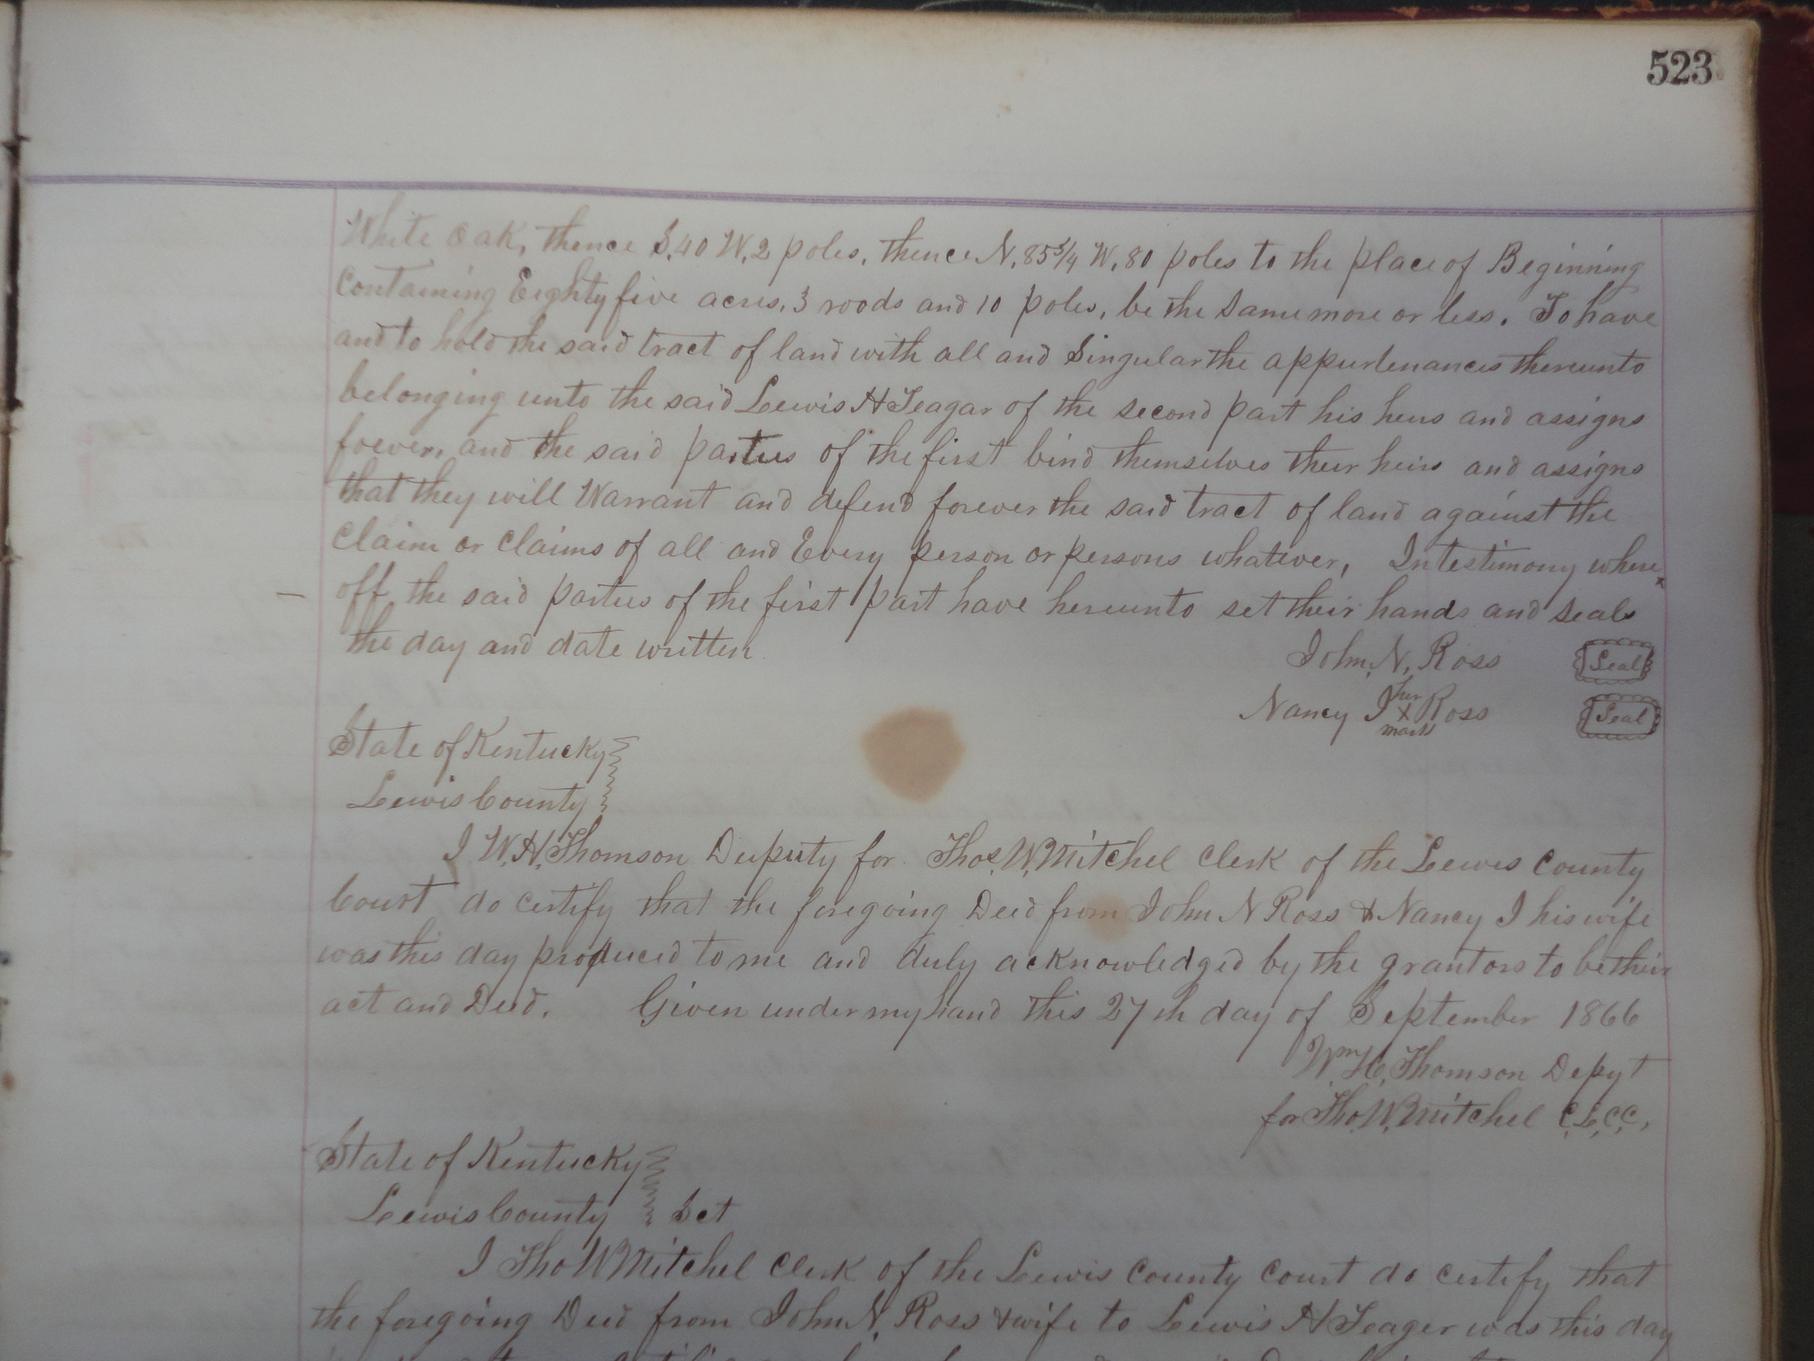 523
White Oak, thence S,40 W,2 poles, thence N,85¾ W,80 poles to the place of Beginning
Containing Eighty five acres, 3 roods and 10 poles, be the same more or less. To have
and to hold the said tract of land with all and Singular the appurtenances thereunto
belonging unto the said Lewis H Teagar of the second part his heirs and assigns
foever, and the said parties of the first bind themselves their heirs and assigns
that they will Warrant and defend forever the said tract of land against the
Claim or Claims of all and Every person or persons whatever, In testimony where
off the said parties of the first part have hereunto set their hands and seals
the day and date written
John, N, Ross Seal
Nancy J her X mark Ross Seal
State of Kentucky
Lewis County
I W.H, Thomson Deputy for Thos, W, Mitchel Clerk of the Lewis County
Court do certify that the foregoing Deed from John N Ross & Nancy J his wife
was this day produced to me and duly acknowledged by the grantors to be their
act and Deed. Given under my hand this 27th day of September 1866
Wm H, Thomson Depyt
for Tho, W, Mitchel C,L,C,C,
State of Kentucky
Lewis County Sct
I Tho W Mitchel Clerk of the Lewis County Court do certify that
the foregoing Deed from John N, Ross & wife to Lewis H Teager was this day